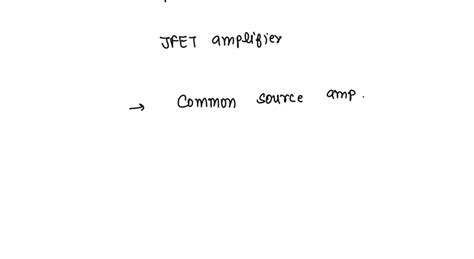 JFET amplifier
→ Common source amp.